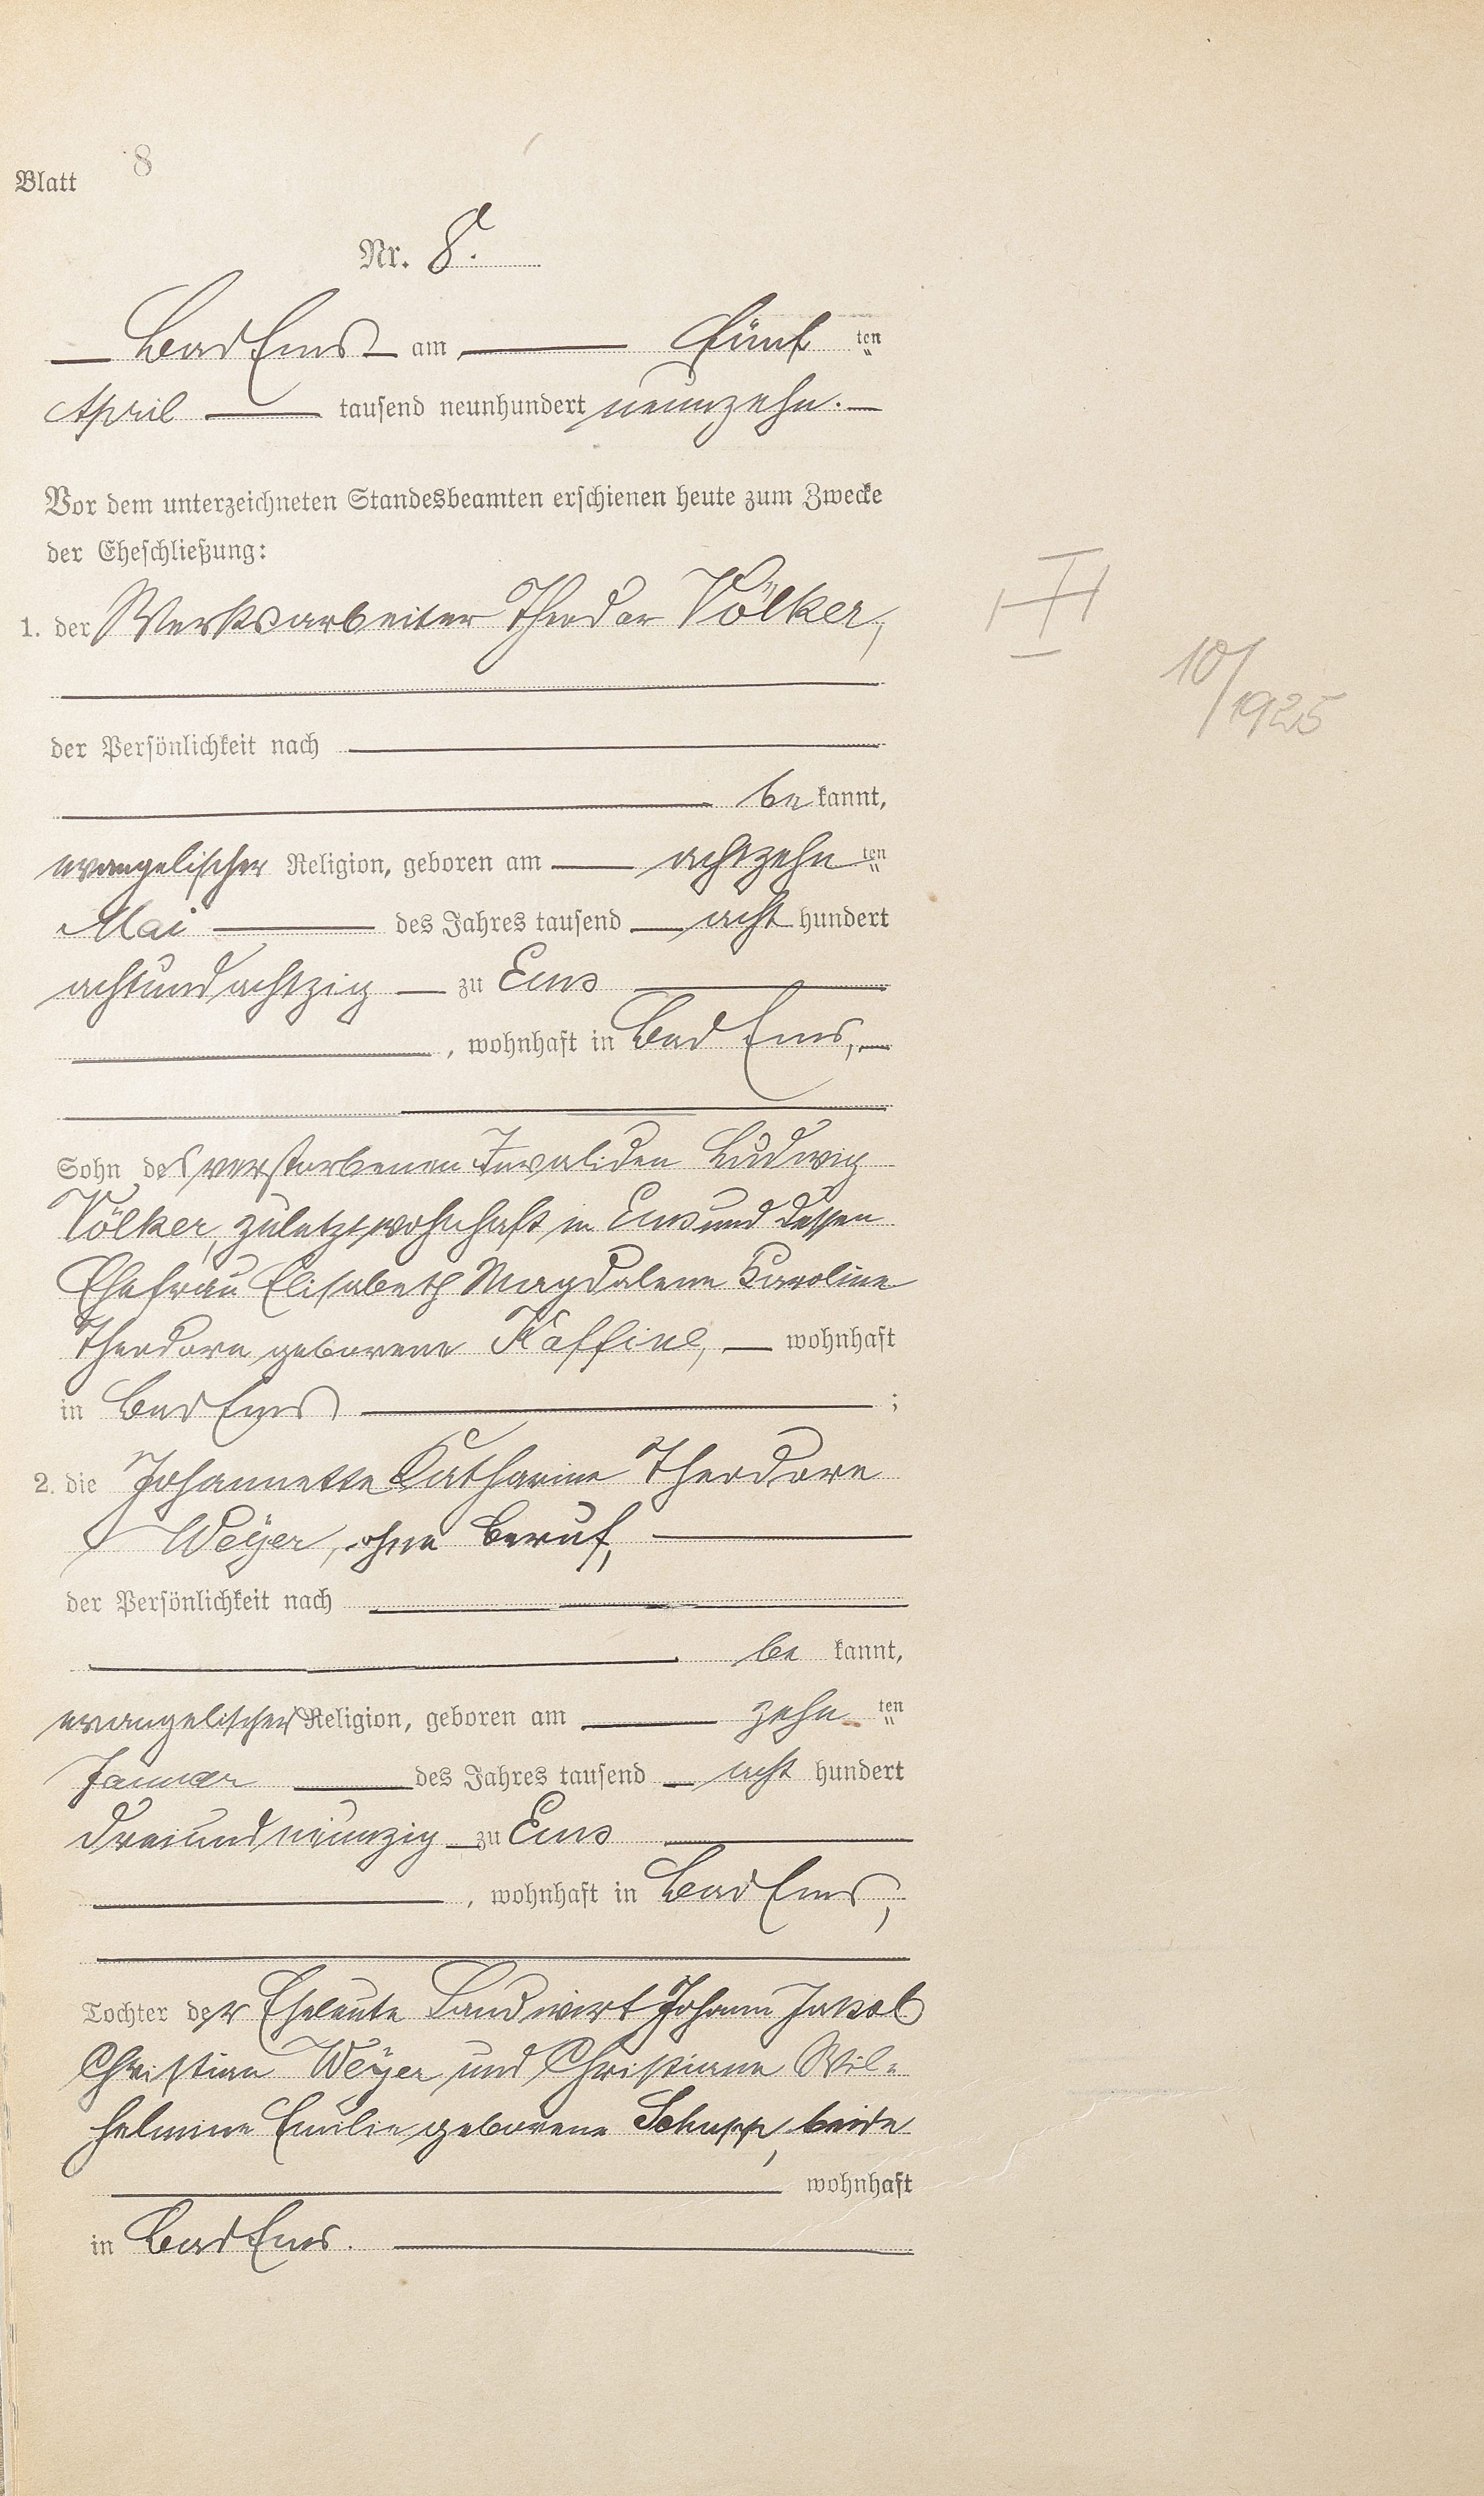 Blatt 8
Nr. 8.
Bad Ems am fünften
April tausend neunhundert neunzehn.
Vor dem unterzeichneten Standesbeamten erschienen heute zum Zwecke
der Eheschließung:
1. der Werksarbeiter Theodor Völker,
der Persönlichkeit nach
bekannt,
evangelischer Religion, geboren am achtzehnten
Mai des Jahres tausend acht hundert
achtundachtzig zu Ems
, wohnhaft in Bad Ems,
Sohn des verstorbenen Invaliden Ludwig
Völker, zuletzt wohnhaft in Ems und dessen
Ehefrau Elisabeth Magdalene Karoline
Theodore geborene Kaffine, wohnhaft
in Bad Ems ;
2. die Johannette Katharine Theodore
Weyer, ohne Beruf,
der Persönlichkeit nach
be kannt,
evangelischer Religion, geboren am zehnten
Januar des Jahres tausend acht hundert
dreiundneunzig zu Ems
, wohnhaft in Bad Ems,
Tochter der Eheleute Landwirt Johann Jakob
Christian Weyer und Christiane Wil=
helmine Emilie geborene Schupp, beide
wohnhaft
in Bad Ems.
10/1925